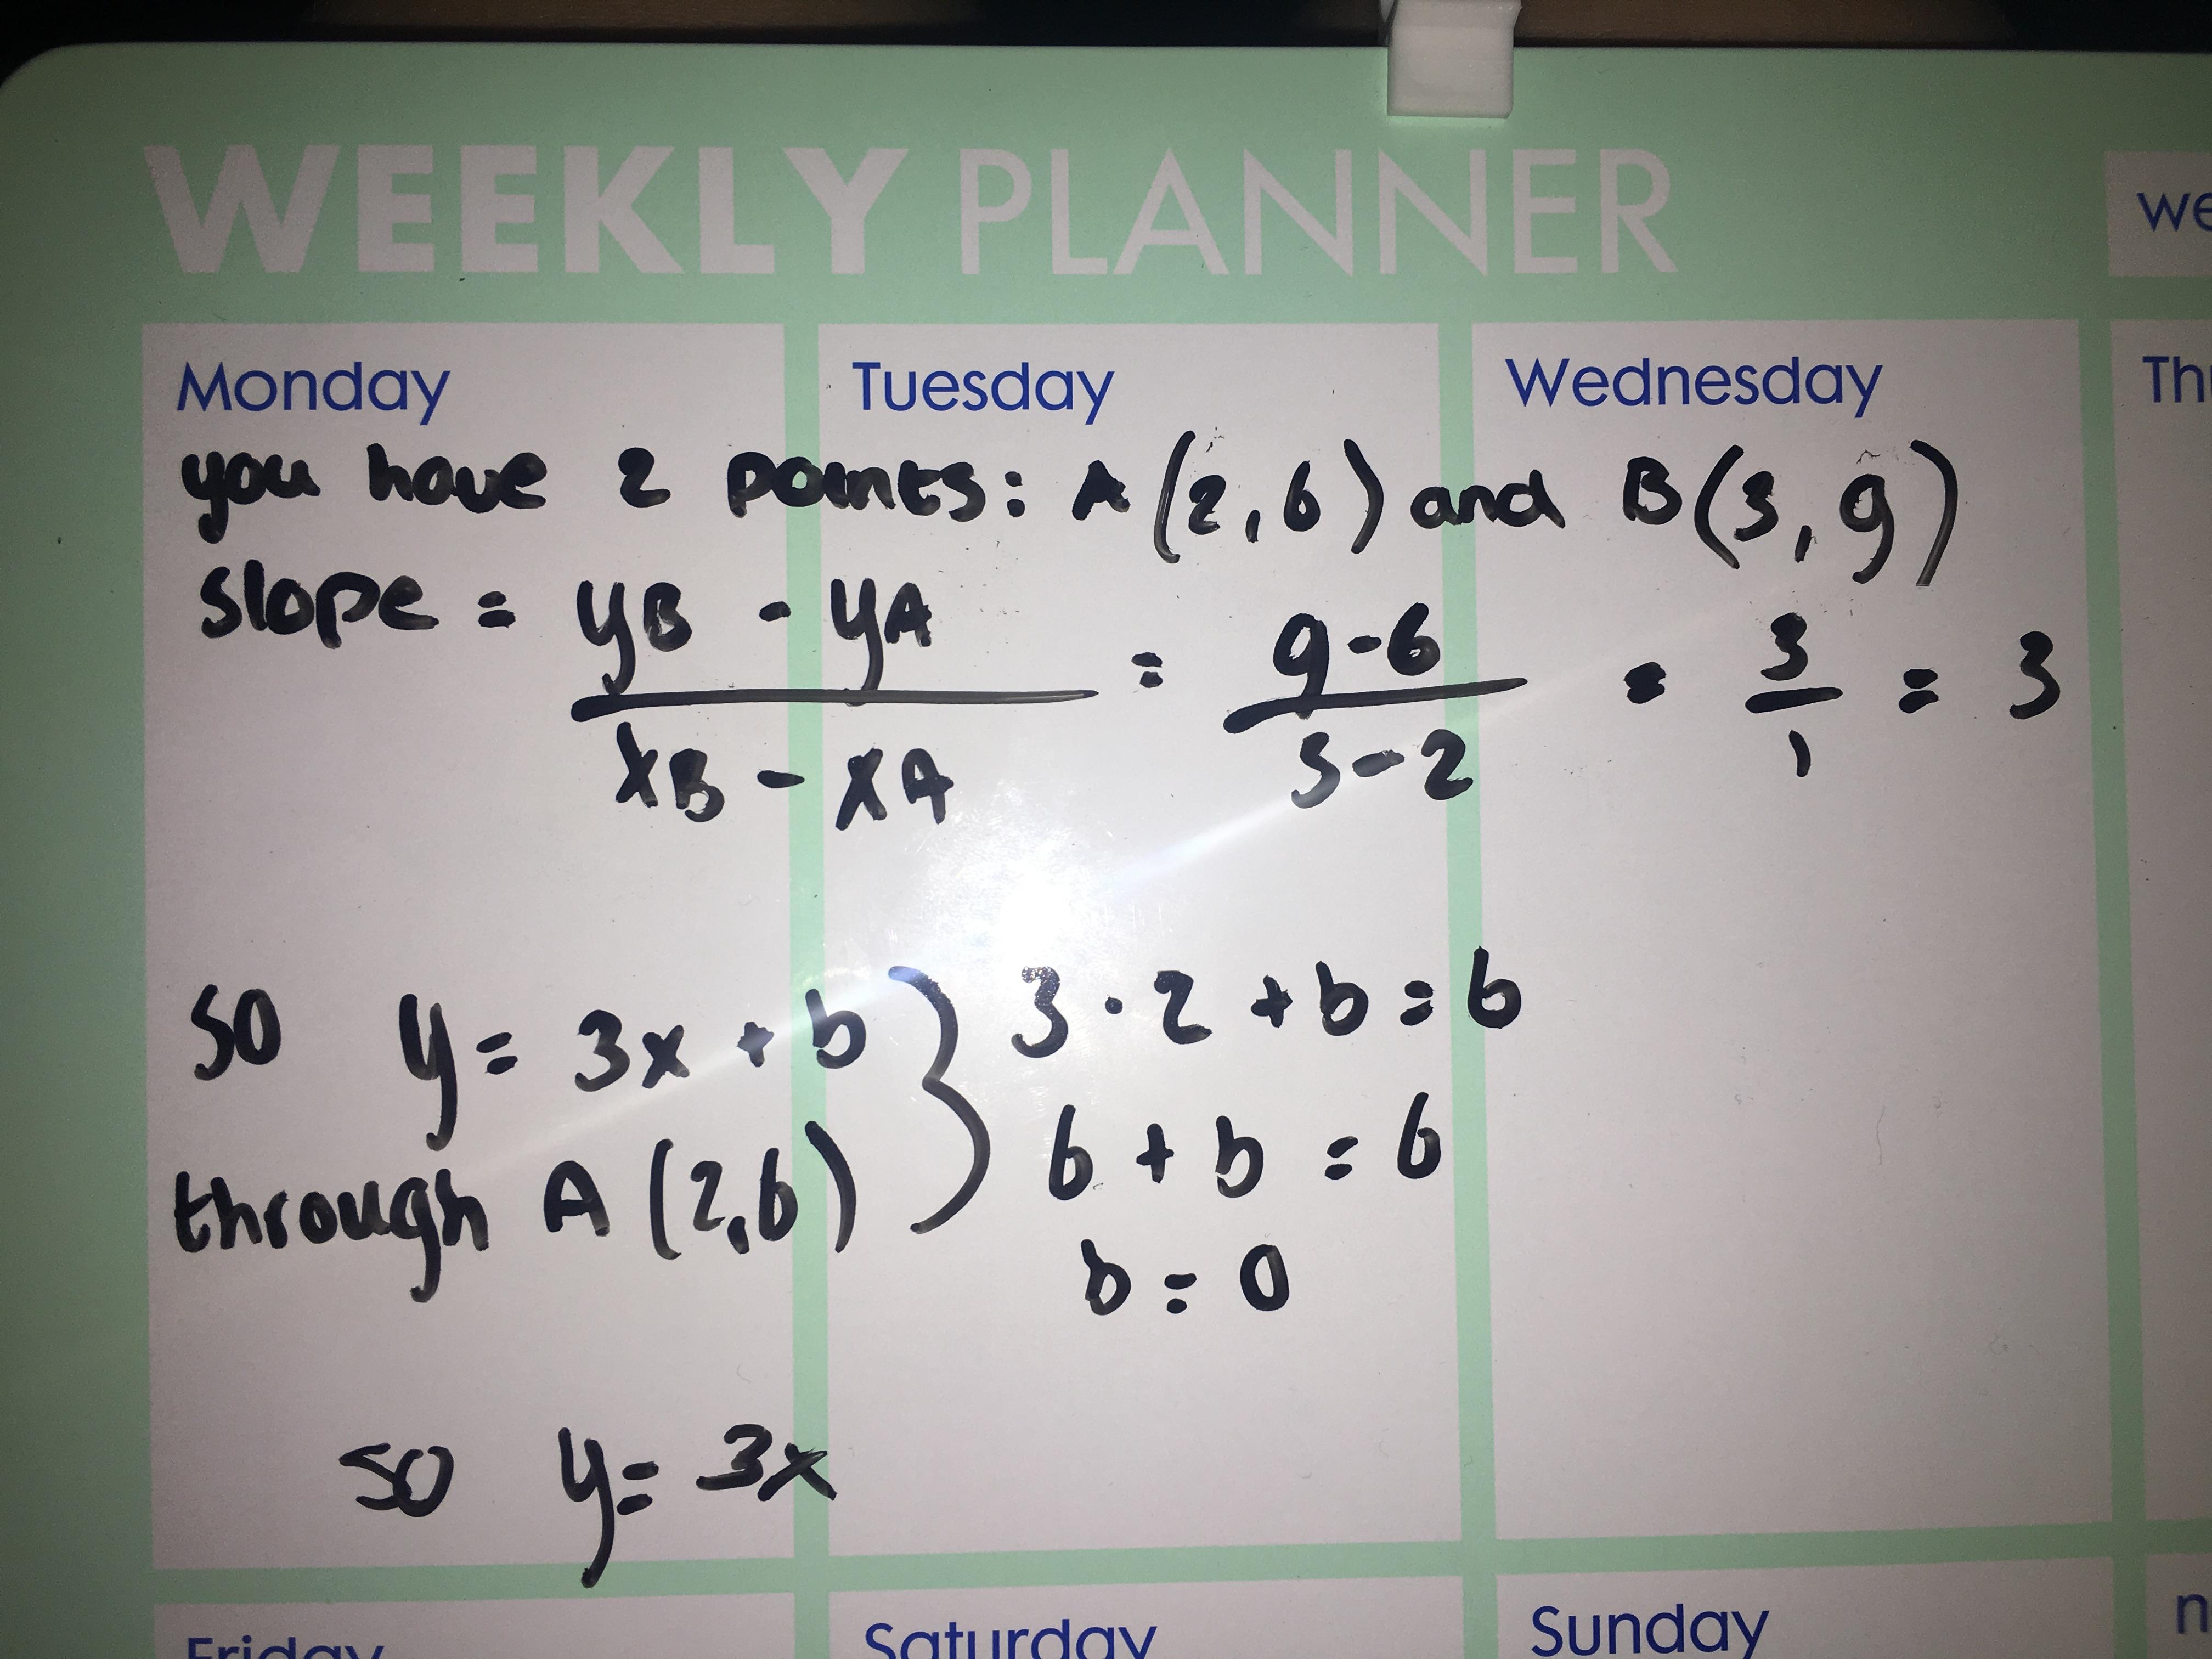 WEEKLY PLANNER
we
Monday Tuesday Wednesday Thu
you have 2 points: A(2,6) and B(3,9)
slope = yB - yA / xB - xA = 9-6 / 3-2 = 3/1 = 3
so y = 3x + b } 3 · 2 + b = 6
through A (2,6) 6 + b = 6
b = 0
so y = 3x
Friday Saturday Sunday n